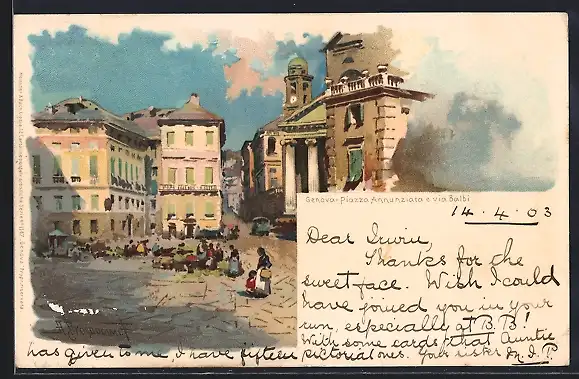 Genova - Piazza Annunziata e via Balbi
14.4.03
Dear Irwin,
Thanks for the
sweet face. Wish I could
have joined you in your
run, especially at B.B!
With some cards that Auntie
has given to me I have fifteen pictorial ones. Your sister M. I. P.